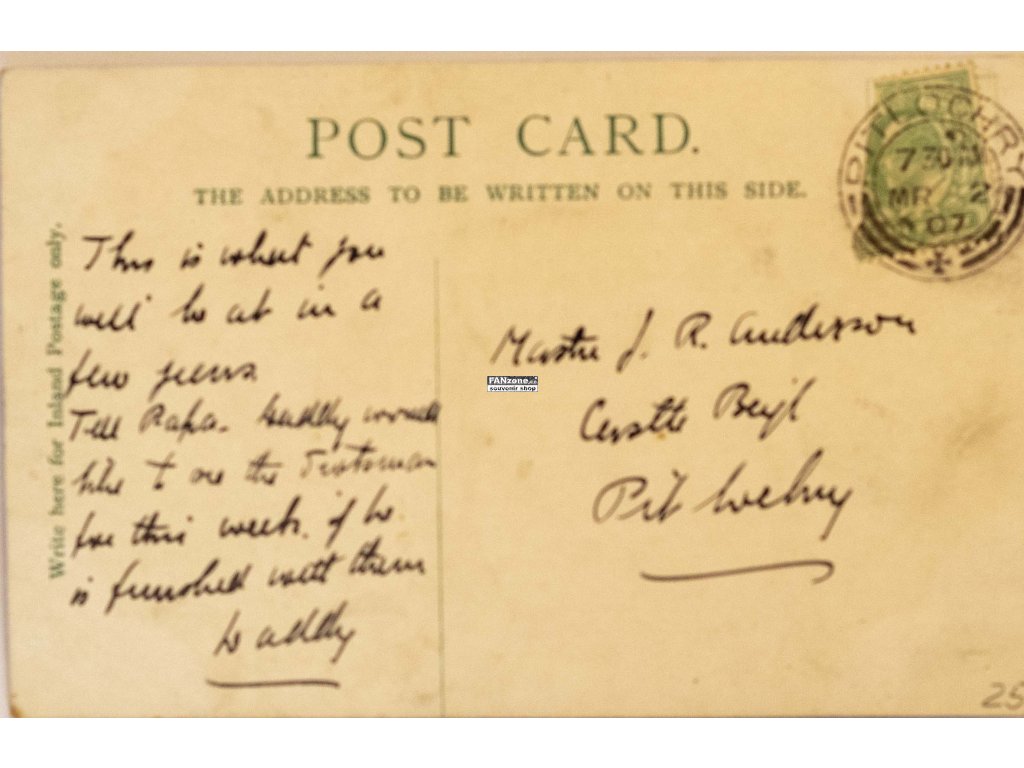 POST CARD.
THE ADDRESS TO BE WRITTEN ON THIS SIDE.
Write here for Inland Postage only.
PITLOCHRY
7 30
MR 2
07
This is what you
will be at in a
few years.
Tell Papa. Daddy would
like to see the
for this week. if he
is finished with them
Daddy
Master J. R. Anderson
Pitlochry
FANzone.cz
souvenir shop
25